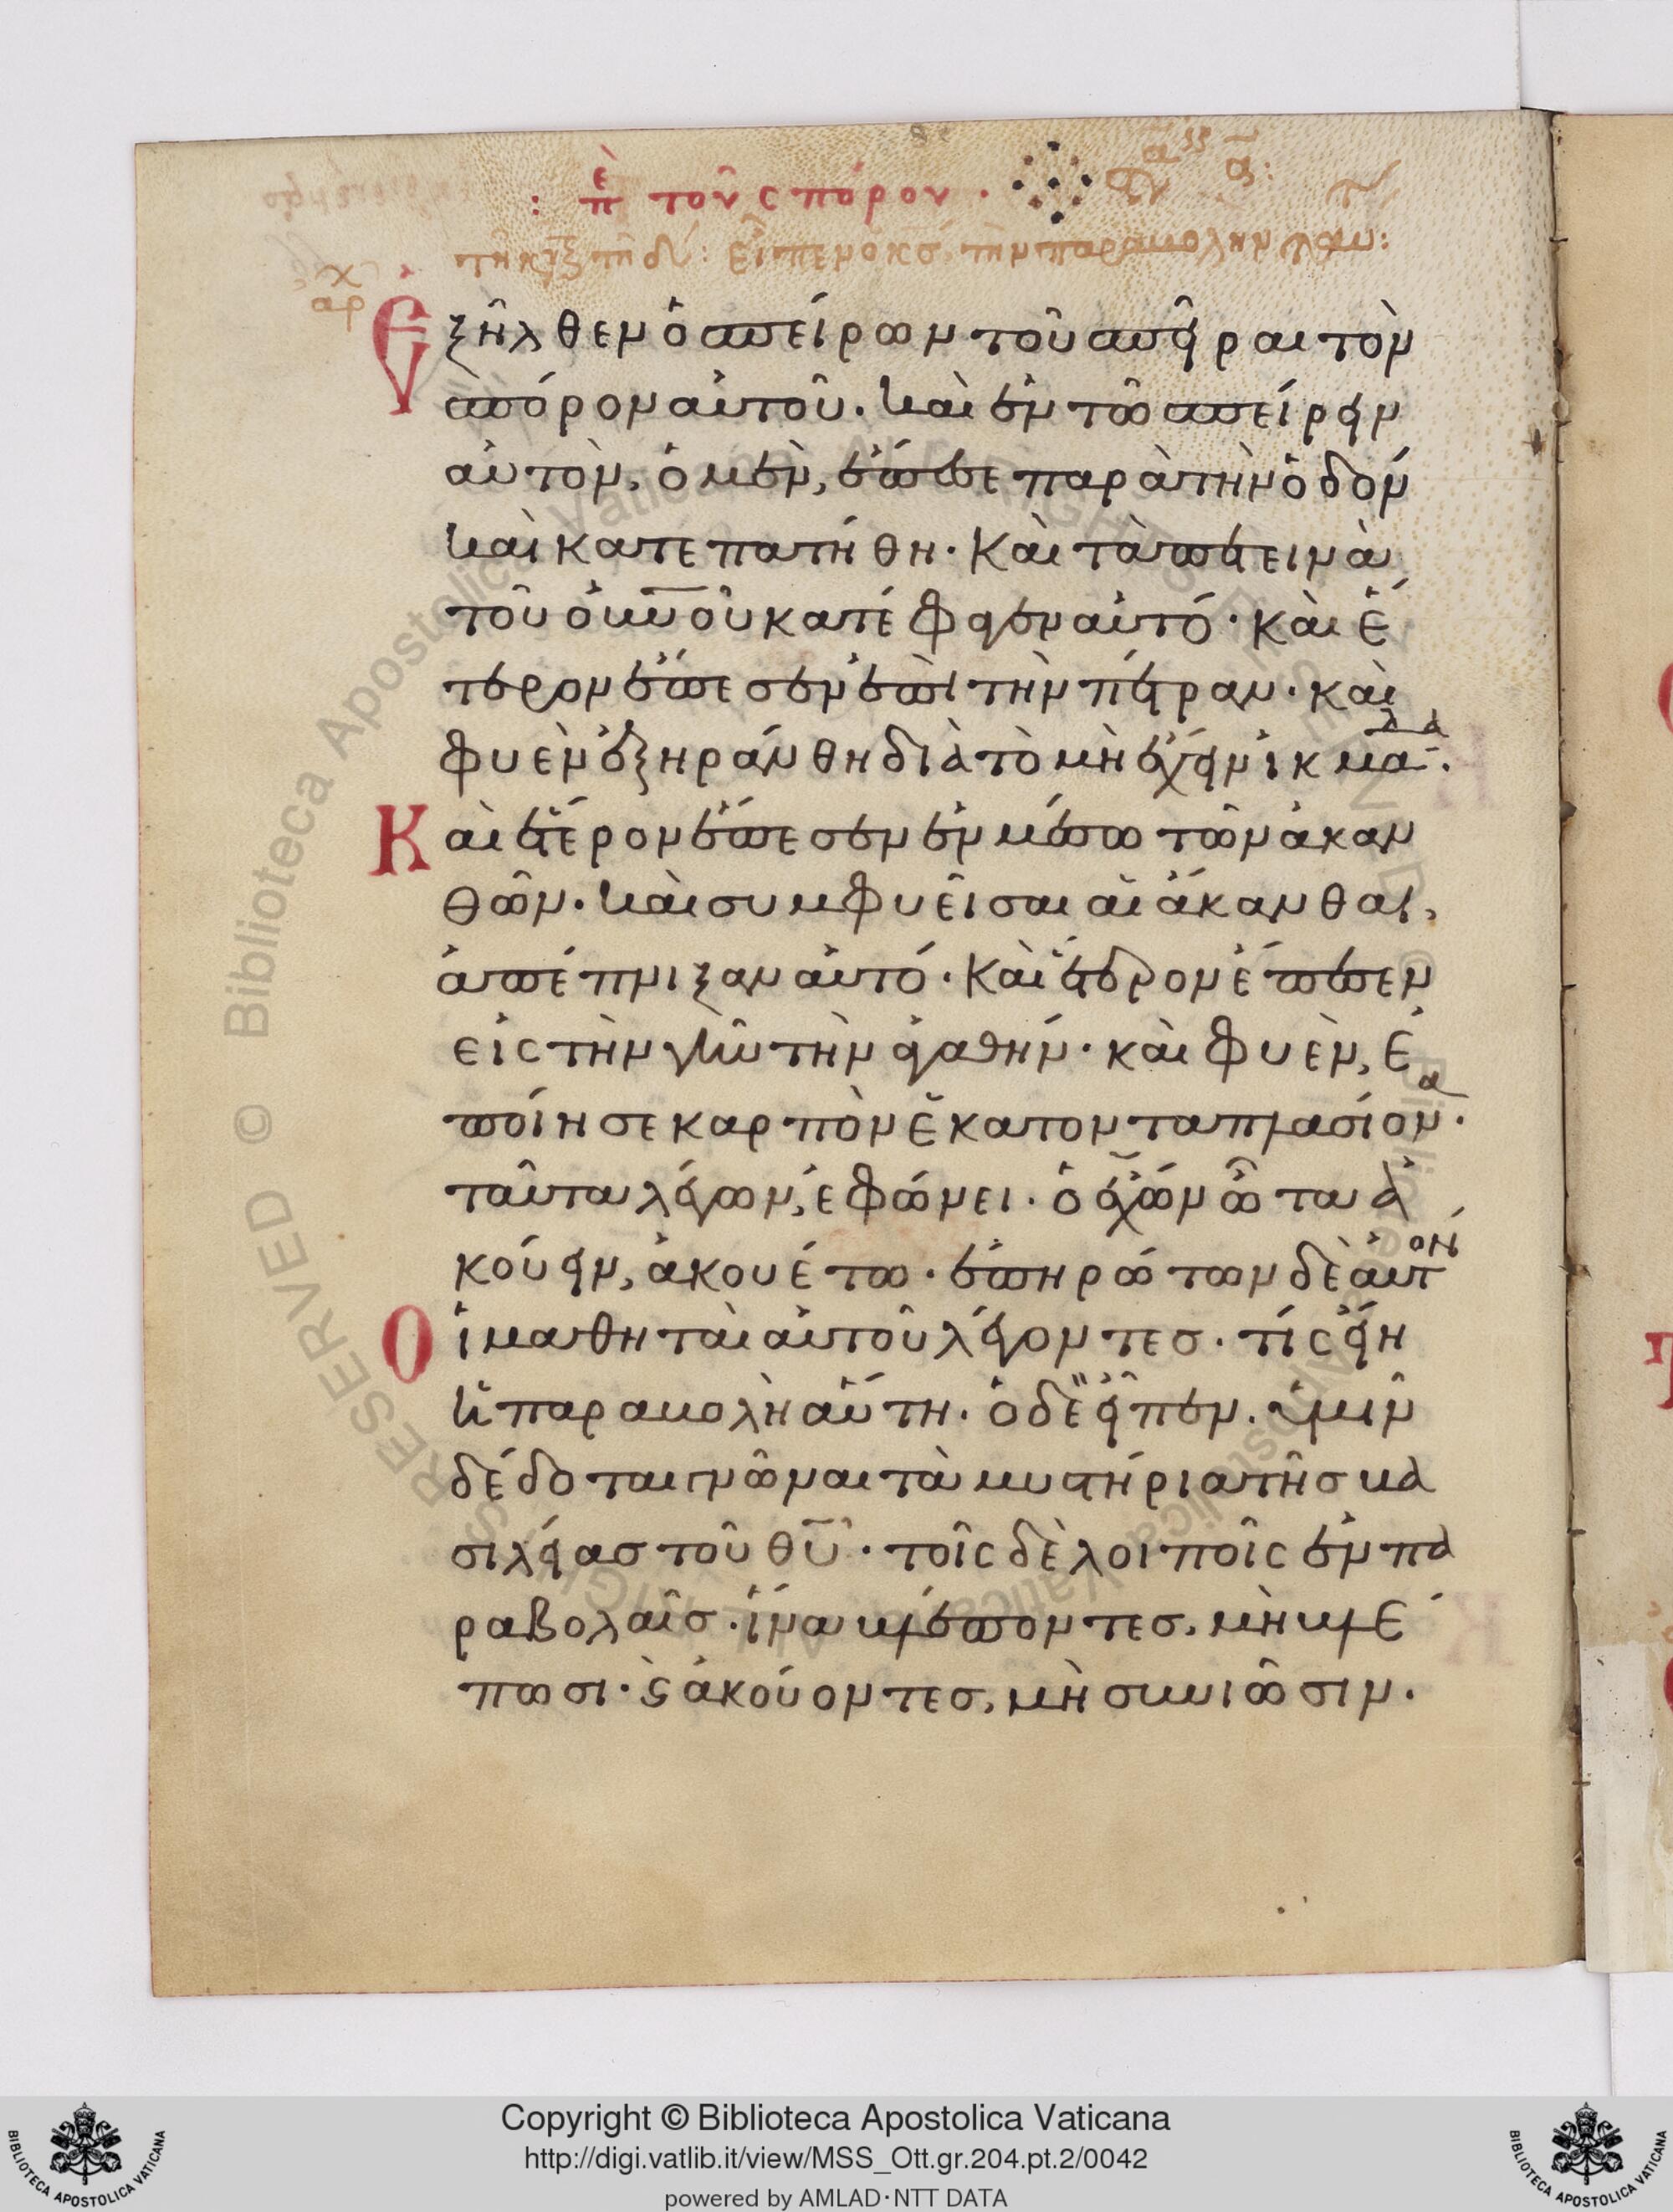 : ἐπ τοῦ σπόρου ·
: εἶπεν ὁ κς, τὴν παραβολὴν ταυ:
χ
αρ
Ἐξῆλθεν ὁ σπείρων τοῦ σπεῖραι τὸν
σπόρον αὐτοῦ. καὶ ἐν τῶ σπείρειν
αὐτὸν, ὁ μὲν, ἔπεσε παρὰ τὴν ὁδόν
καὶ κατεπατήθη. καὶ τὰ πετεινὰ
τοῦ οὐνοῦ κατέφαγεν αὐτό. καὶ ἕ
τερον ἔπεσεν ἐπὶ τὴν πέτραν. καὶ
φυὲν ἐξηράνθη διὰ τὸ μὴ ἔχειν ἰκμάδα.
Καὶ ἕτερον ἔπεσεν ἐν μέσω τῶν ἀκαν
θῶν. καὶ συμφυεῖσαι αἱ ἄκανθαι,
ἀπέπνιξαν αὐτό. Καὶ ἕτερον ἔπεσεν
εἰς τὴν γῆν τὴν ἀγαθήν. καὶ φυὲν, ἐ
ποίησε καρπὸν ἑκατονταπλασίονα.
ταῦτα λέγων, ἐφώνει. ὁ ἔχων ὦτα ἀ
κούειν, ἀκουέτω. ἐπηρώτων δὲ αὐτὸν
Οἱ μαθηταὶ αὐτοῦ λέγοντες. τίς εἴη
ἡ παραβολὴ αὕτη. ὁ δὲ εἶπεν. ὑμῖν
δέδοται γνῶναι τὰ μυστήρια τῆς βα
σιλείας τοῦ θυ. τοῖς δὲ λοιποῖς ἐν πα
ραβολαῖς. ἵνα βλέποντες, μὴ βλέ
πωσι. ϛ ἀκούοντες, μὴ συνιῶσιν.
Copyright © Biblioteca Apostolica Vaticana
http://digi.vatlib.it/view/MSS_Ott.gr.204.pt.2/0042
powered by AMLAD·NTT DATA
BIBLIOTECA APOSTOLICA VATICANA
BIBLIOTECA APOSTOLICA VATICANA